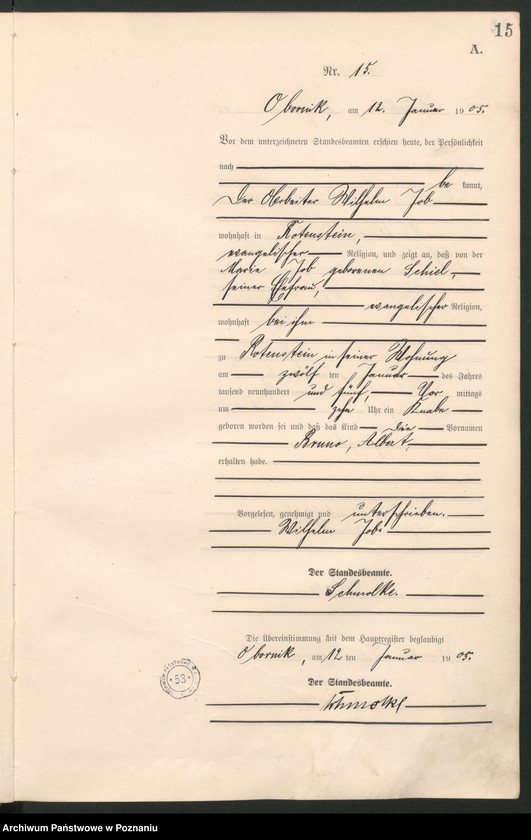 15
A.
Nr. 15.
Obornik, am 12. Januar 1905.
Vor dem unterzeichneten Standesbeamten erschien heute, der Persönlichkeit
nach
be kannt,
der Arbeiter Wilhelm Job
wohnhaft in Rotenstein,
evangelischer Religion, und zeigt an, daß von der
Marie Job geborenen Schiel,
seiner Ehefrau,
evangelischer Religion,
wohnhaft bei ihm
zu Rotenstein in seiner Wohnung
am zwölf ten Januar des Jahres
tausend neunhundert und fünf, Vor mittags
um zehn Uhr ein Knabe
geboren worden sei und daß das Kind die Vornamen
Bruno, Albert,
erhalten habe.
Vorgelesen, genehmigt und unterschrieben.
Wilhelm Job.
Der Standesbeamte.
Schmolke.
Die Übereinstimmung mit dem Hauptregister beglaubigt
Obornik, am 12 ten Januar 1905.
Der Standesbeamte.
Schmolke
53
Archiwum Państwowe w Poznaniu